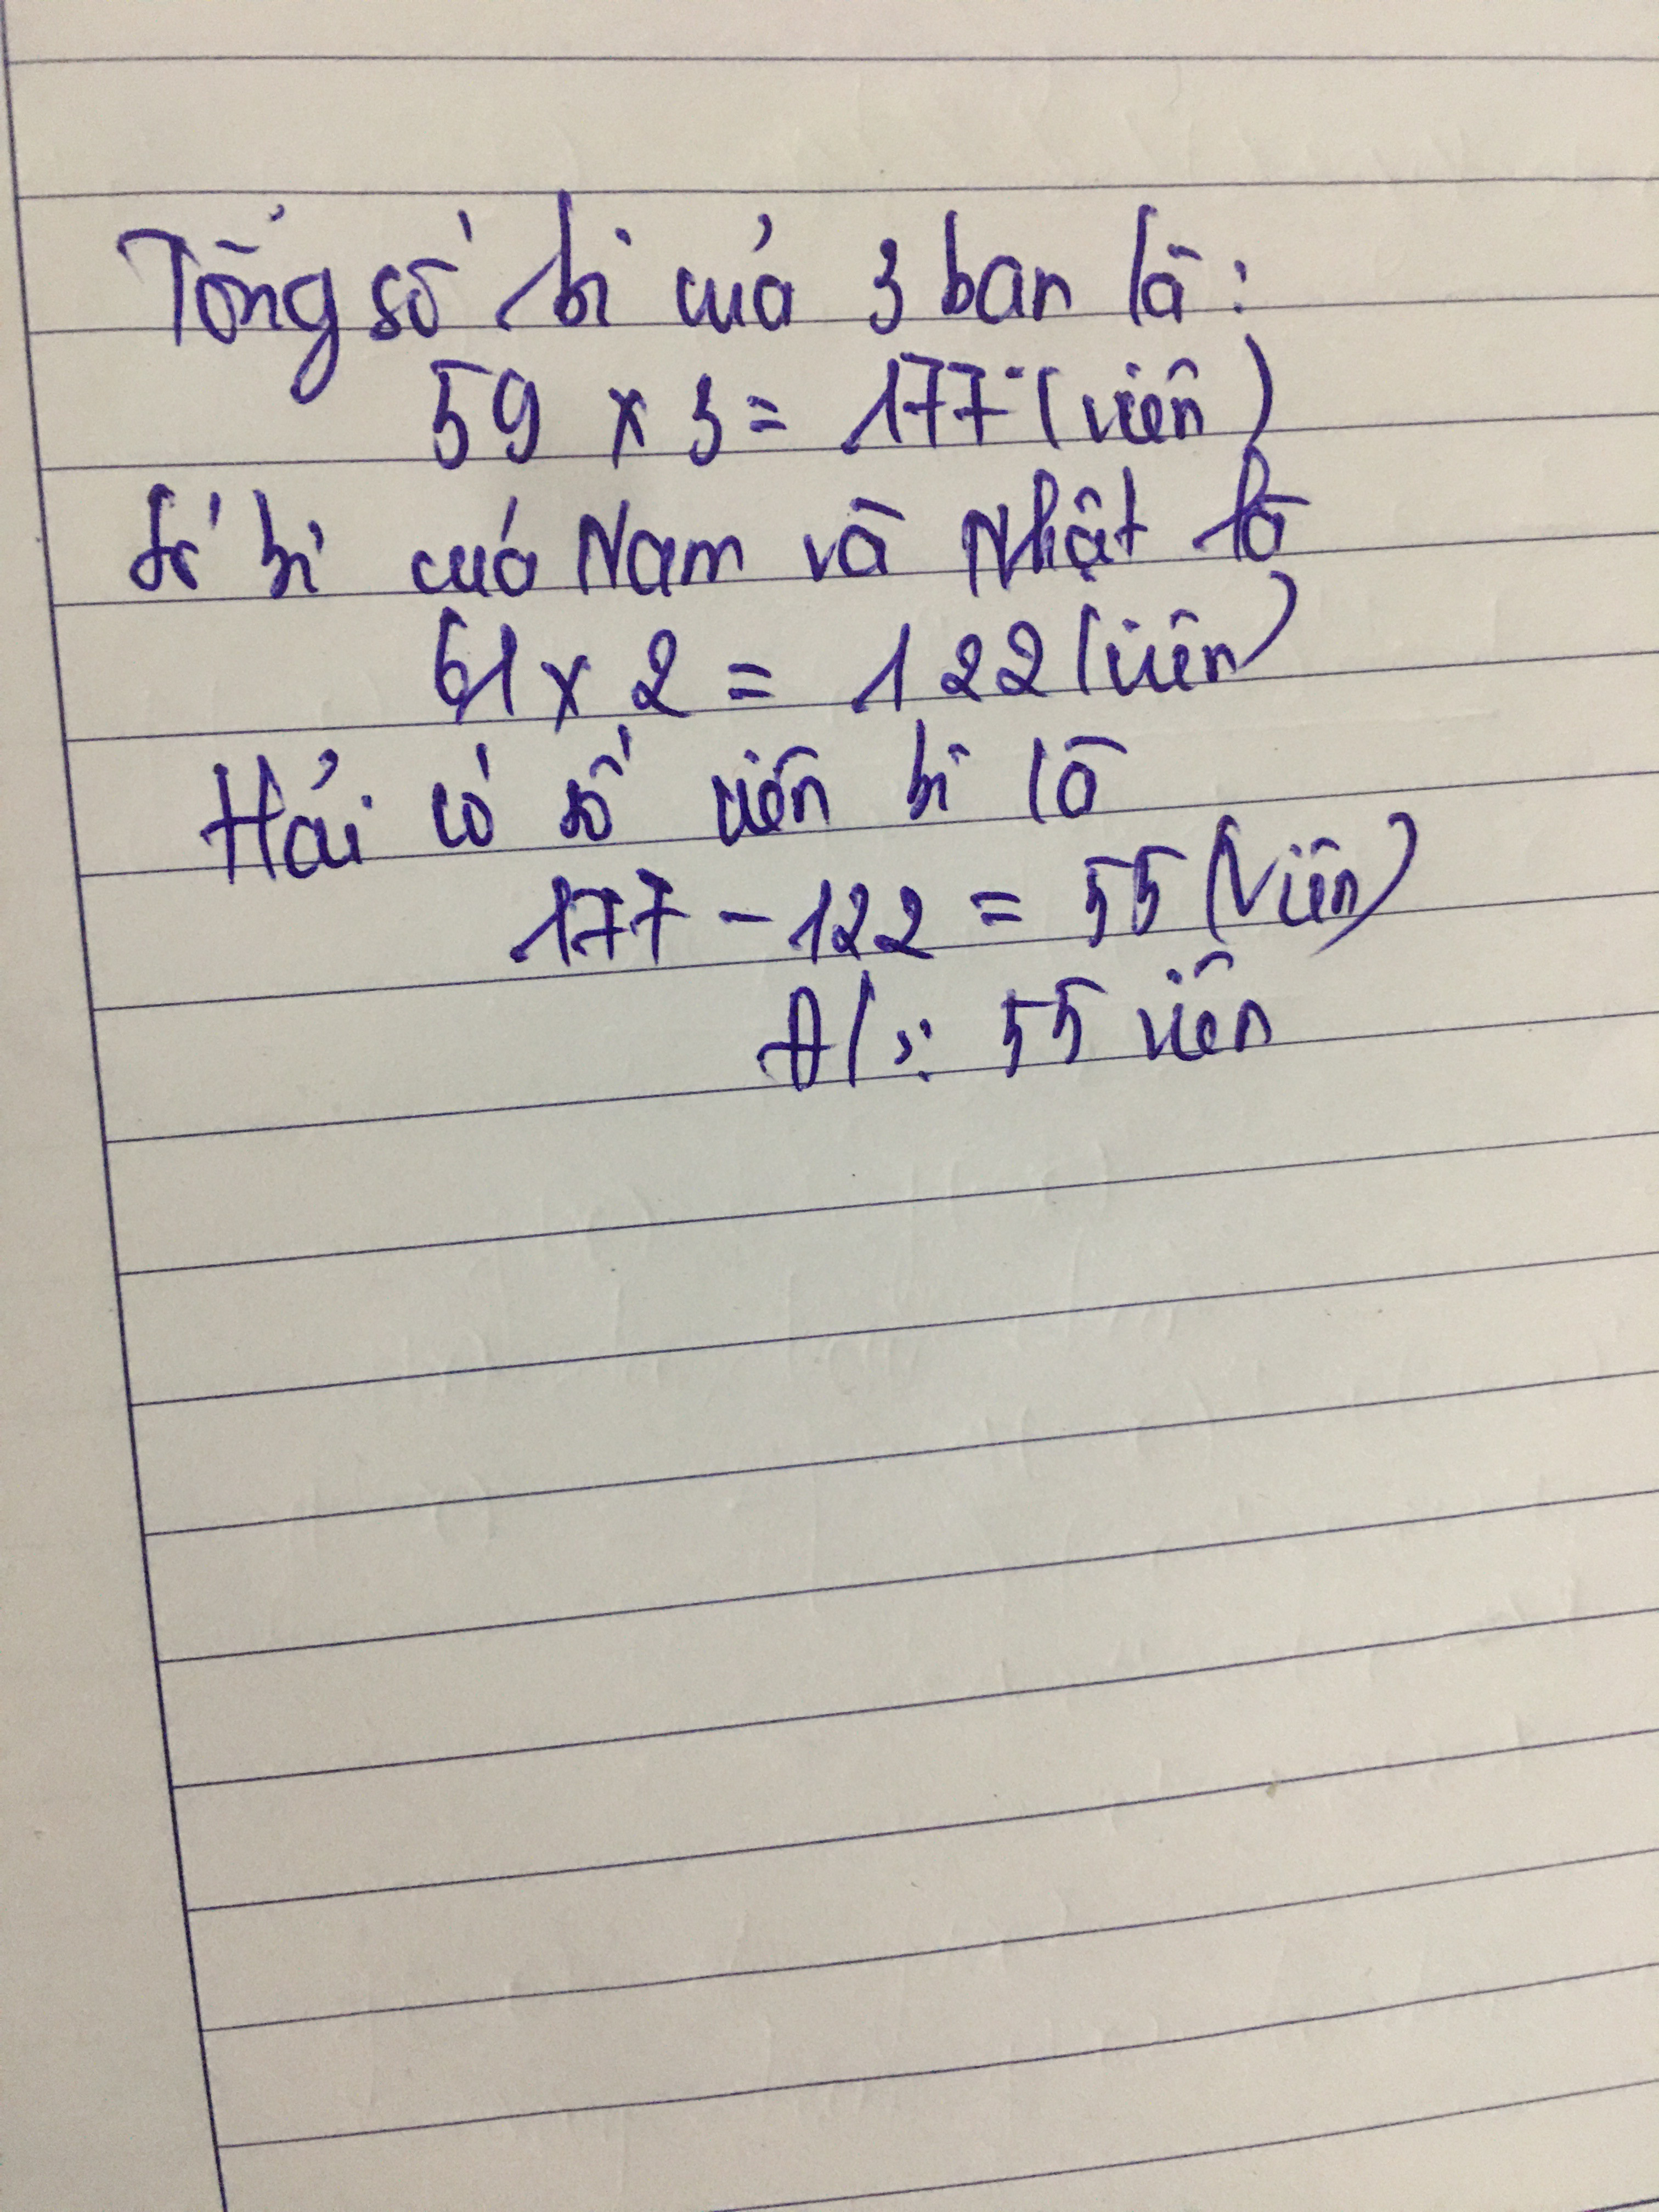 Tổng số bi của 3 bạn là:
59 x 3 = 177 (viên)
Số bi của Nam và Nhật là
61 x 2 = 122 (viên)
Hải có số viên bi là
177 - 122 = 55 (viên)
Đ/s: 55 viên